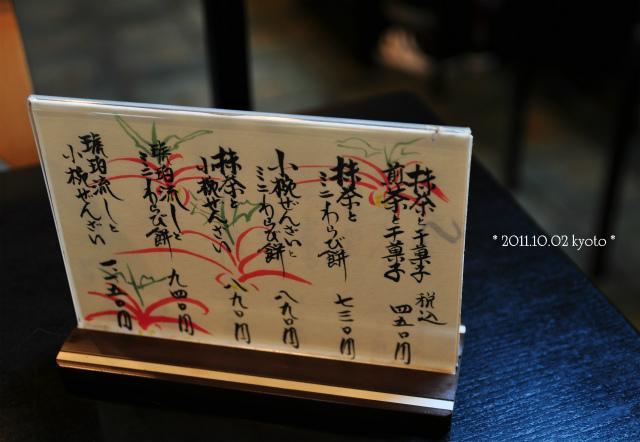 抹茶と干菓子 税込
煎茶と干菓子 四五〇円
抹茶と
ミニわらび餅 七三〇円
小椀ぜんざいと
ミニわらび餅 八九〇円
抹茶と
小椀ぜんざい 八九〇円
琥珀流しと
ミニわらび餅 九四〇円
琥珀流しと
小椀ぜんざい 一一五〇円
* 2011.10.02 kyoto *